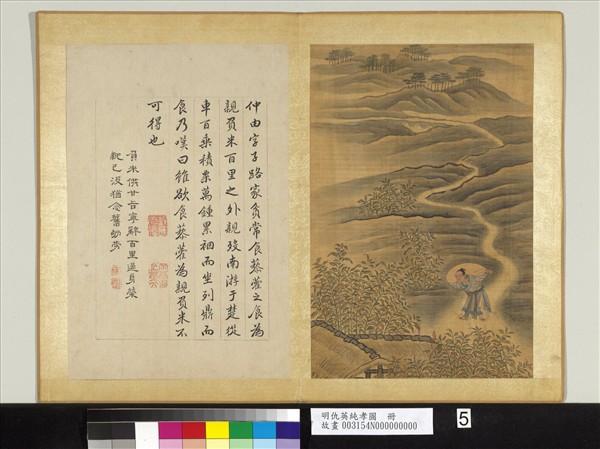 仲由字子路家貧常食藜藿之食為
親負米百里之外親歿南游于楚從
車百乘積粟萬鍾累裀而坐列鼎而
食乃嘆曰雖欲食藜藿為親負米不
可得也
負米供甘旨寧辭百里遙身榮
親已沒猶念舊劬勞
明仇英純孝圖 冊
故畫 003154N000000000
5